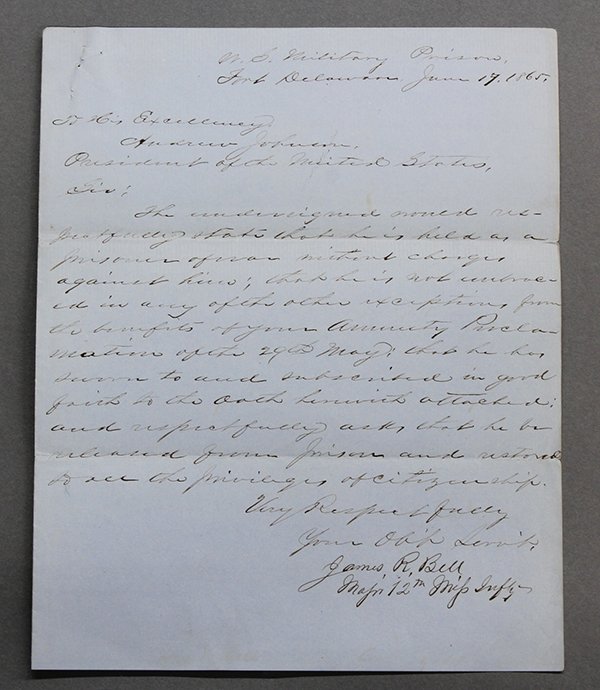 U. S. Military Prison,
Fort Delaware, June 17, 1865.
To His Excellency,
Andrew Johnson,
President of the United States,
Sir:
The undersigned would res-
pectfully state that he is held as a
prisoner of war without charges
against him; that he is not embrac-
ed in any of the other exceptions from
the benefits of your Amnesty Procla-
mation of the 29th May; that he has
sworn to and subscribed in good
faith to the Oath herewith attached;
and respectfully asks that he be
released from Prison and restored
to all the privileges of citizenship.
Very Respectfully
Your Ob't Servt.
James R. Bell
Majr 12th Miss Infty